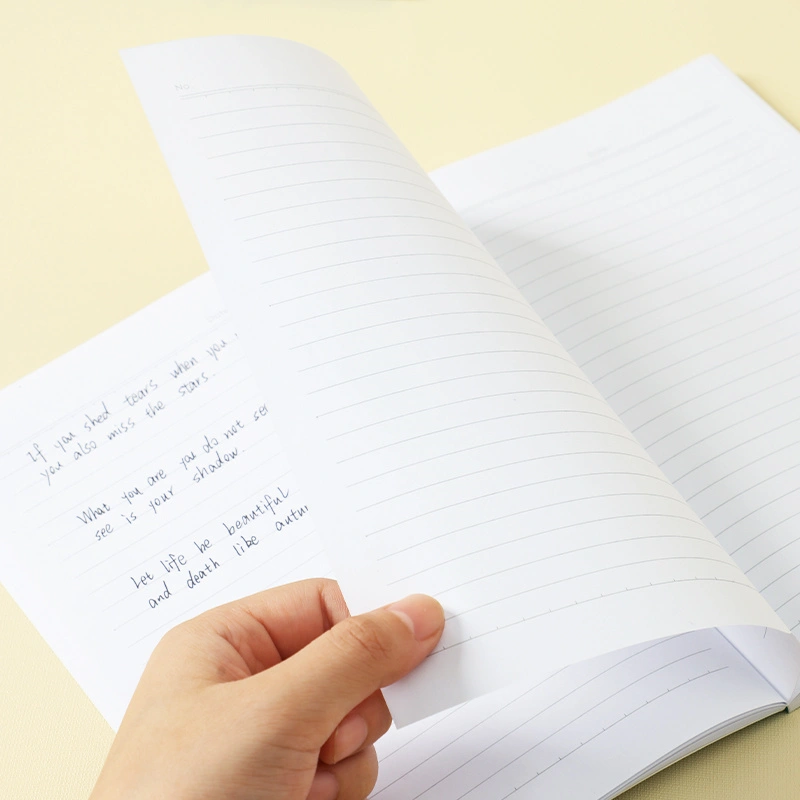 No
If you shed tears when you
you also miss the stars.
What you are you do not see
see is your shadow.
Let life be beautiful
and death like autu